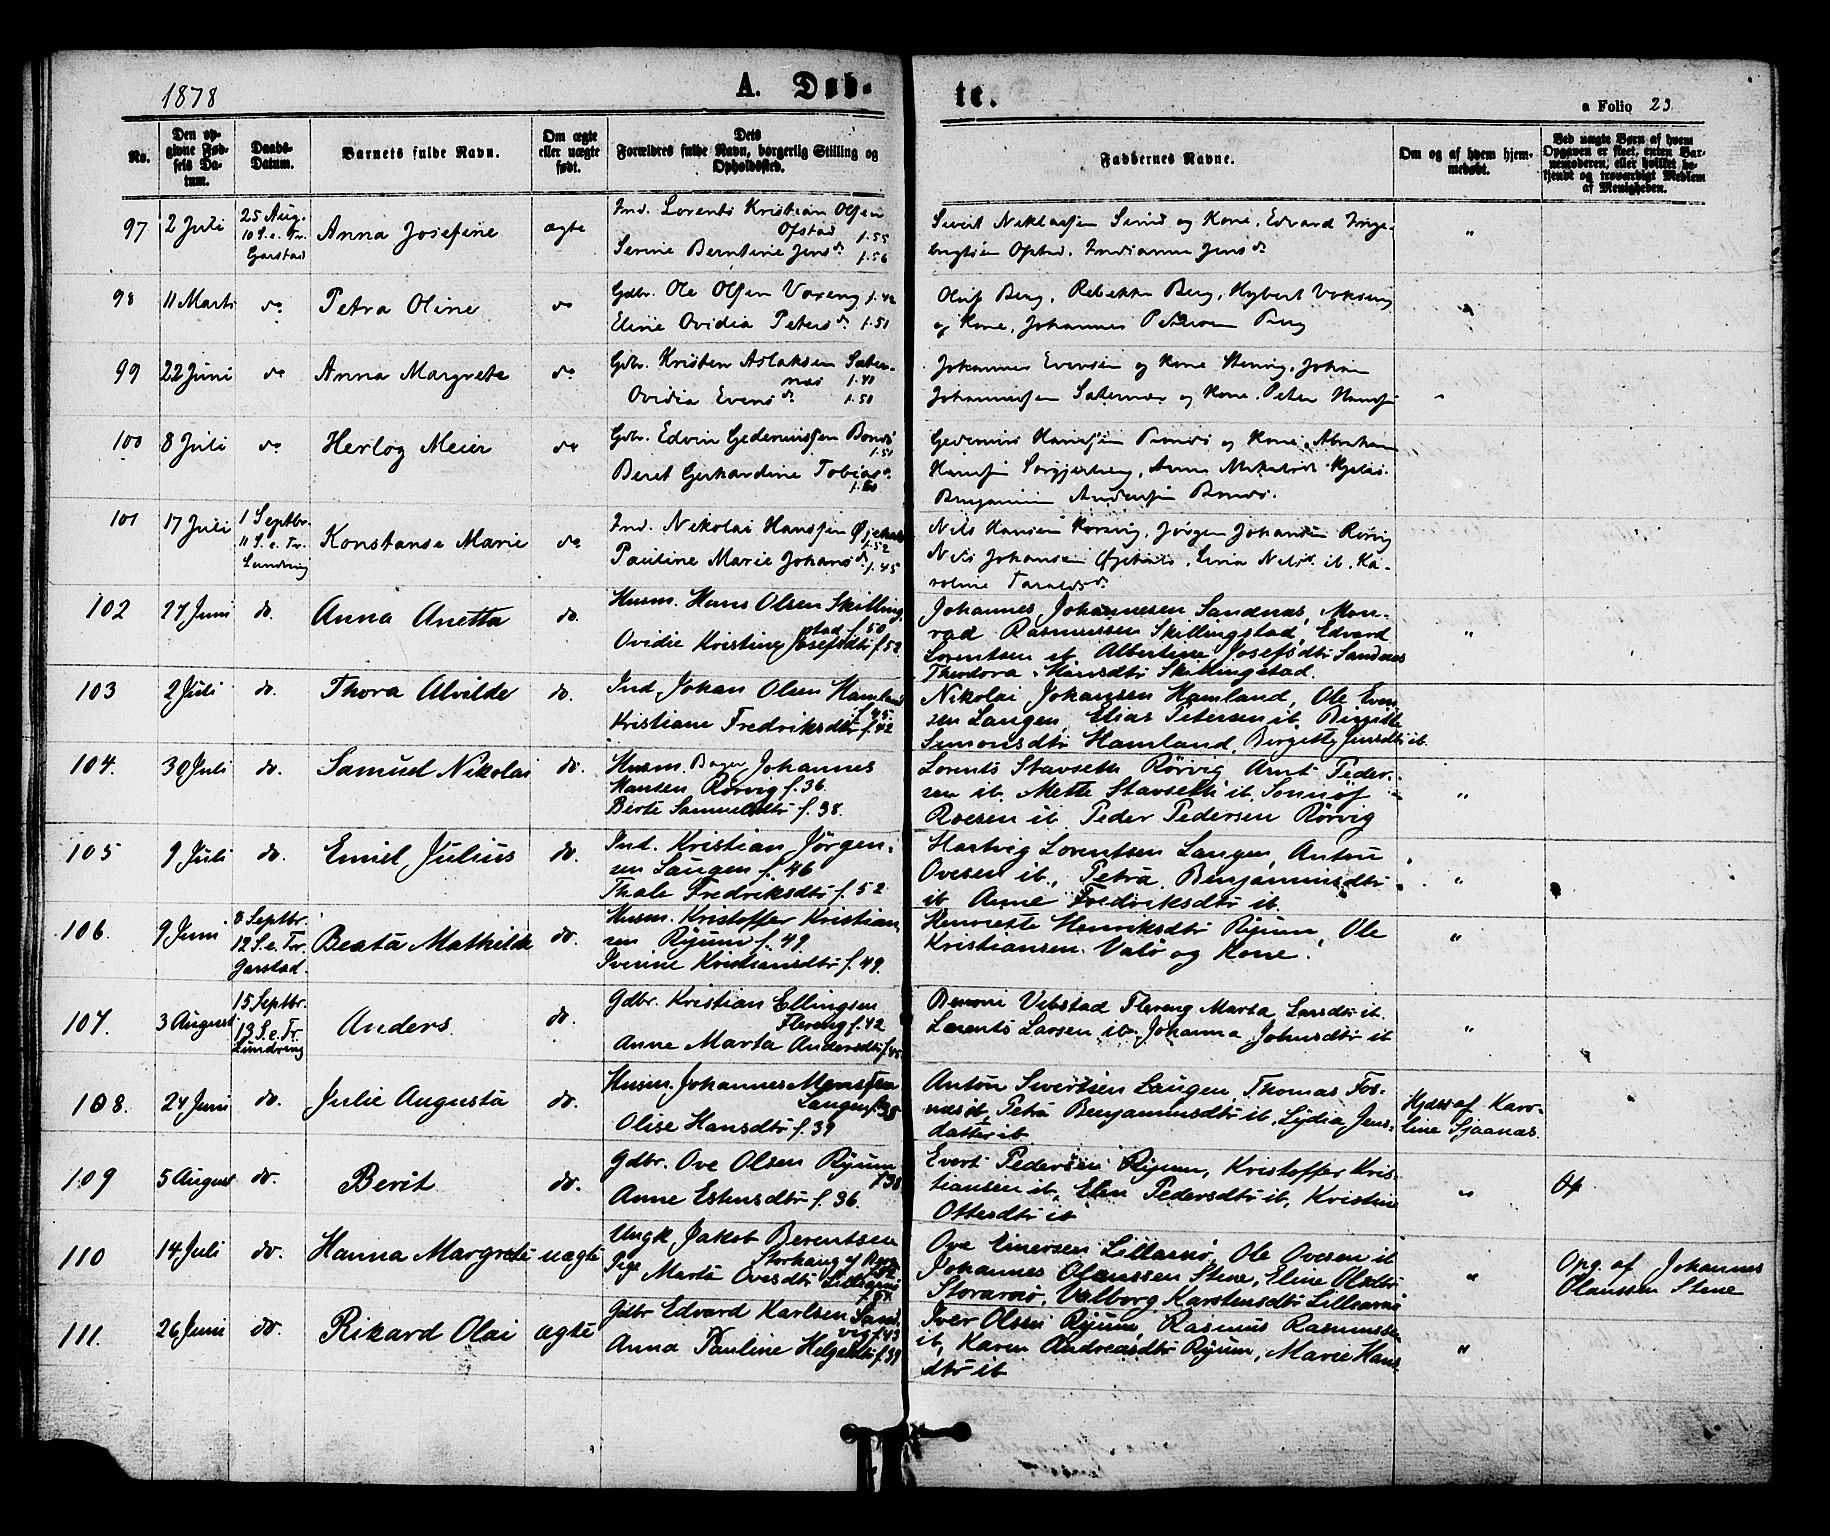 1878 A. Døb-
te.
a Folio 23
No.
Den op-
givne Fød-
sels Da-
tum.
Daabs-
Datum.
Barnets fulde Navn.
Om ægte
eller uægte
født.
Dets
Forældres fulde Navn, borgerlig Stilling og
Opholdssted.
Faddernes Navne.
Om og af hvem hjem-
medøbt.
Ved uægte Børn af hvem
Opgaven er skeet, enten Bar-
nemoderen, eller hvilket be-
kjendt og troværdigt Medlem
af Menigheden.
97 2 Juli 25 Aug. 10 S. e. Tr. Garstad Anna Josefine ægte
Ind. Lorents Kristian Olsen
Ofstad f. 55
Serine Berntine Jensd. f. 56
Sivert Niklassen og Kone, Edvard Inge-
brigtsen Ofstad, Indianna Jensd. "
98 11 Marts do Petra Oline do
Gdbr. Ole Olsen Voxeng f. 42
Eline Ovidia Petersd. f. 51
Oluf Berg, Rebekka Berg, Hybert Vokseng
og Kone, Johannes Petersen "
99 22 Juni do Anna Margrete do
Gdbr. Kristen Aslaksen Sæter-
næs f. 41
Ovidia Evensd. f. 51
Johannes Evensen og Kone Johan
Johannessen Sæternæs og Kone, Peter Hansen "
100 8 Juli do Herlog Meier do
Gdbr. Edvin Gederniussen f. 51
Beret Gerhardine Tobiasd.
Gedernius Hansen og Kone, Abraham
Hansen Anna
Benjamin Andersen
101 17 Juli 1 Septbr. 11 S. e. Tr. Lundring Konstanse Marie do
Ind. Nikolai Hanssen f. 52
Pauline Marie Johansd. f. 45
Nils Hansen Rørvig, Jørgen Johansen Rørvig
Nils Johansen Nilsd. ib. Ka-
roline
102 27 Juni do. Anna Anetta do.
Husm. Hans Olsen Skilling-
stad f. 50
Ovidie Kristine Josefsdtr f. 52
Johannes Johannesen Sandnæs, Mon-
rad Rasmussen Skillingstad, Edvard
Lorentsen ib. Albertine Josefsdtr Sandnæs
Theodora Hansdtr Skillingstad. "
103 2 Juli do. Thora Alvilde do.
Ind. Johan Olsen Hamland
f. 45.
Kristiane Fredriksdtr f. 42
Nikolai Johansen Hamland, Ole Even-
sen Laugen, Elias Petersen ib. Birgitte
Simonsdtr Hamland, Birgitte Jensdtr ib.
104. 30 Juli do. Samuel Nikolai do.
Husm. Bager Johannes
Hansen Rørvig f. 36.
Berte Samuelsdtr f. 38.
Lorents Stavseth Rørvig Arnt Peder-
sen ib. Mette Stavseth ib.
ib. Peder Pedersen Rørvig "
105 9 Juli do. Emiel Julius do.
Ind. Kristian Jørgen-
sen Laugen f. 46
Thale Fredriksdtr f. 52
Hartvig Lorentsen Laugen, Anton
Ovesen ib., Petra Benjaminsdtr
ib. Anne Fredriksdtr ib. "
106. 9 Juni 8 Septbr. 12 S. e. Tr. Garstad. Beata Mathilde do.
Husm. Kristoffer Kristian-
sen Ryum f. 49.
Iverine Kristiansdtr f. 49.
Henriette Henriksdtr Ryum, Ole
Kristiansen Valø og Kone. "
107. 3 August 15 Septbr. 13 S. e. Tr. Lundring Anders. do.
Gdbr. Kristian Ellingsen
Flereng f. 42
Anne Marta Andersdtr f. 45
Benoni Vibstad Flereng Marta Larsdtr ib.
Lorents Larsen ib. Johanna Johnsdtr ib "
108. 24 Juni do. Julie Augusta do.
Husm. Johannes Monssen
Laugen f. 38
Olise Hansdtr f. 39
Anton Sivertsen Laugen, Thomas Fos-
næs ib. Petra Benjaminsdtr ib. Lydia Jens-
datter ib
Hjdøbt af Karo-
line Sjaanæs.
109 5 August do. Berit do.
Gdbr. Ove Olsen Ryum
f. 38
Anne Estensdtr f. 36.
Evert Pedersen Ryum, Kristoffer Kris-
tiansen ib. Elen Pedersdtr ib., Kristine
Ottersdtr ib " Op
110 14 Juli do. Hanna Margrete uægte
Ungk. Jakob Berentsen
Pige Marta Ovesdtr
Ove Einersen Lillearnø, Ole Ovesen ib
Johannes Olaussen Stene, Eline Olsdtr
Storarnø, Valborg Karstensdtr Lillearnø "
Opg. af Johannes
Olaussen Stene
111. 26 Juni do. Rikard Olai ægte
Gdbr Edvard Karlsen Sand-
vig f. 43
Anna Pauline Helgesdtr f. 39
Iver Olsen Ryum, Rasmus Rasmussen
ib, Karen Andreasdtr Ryum, Marie Hans-
dtr ib "